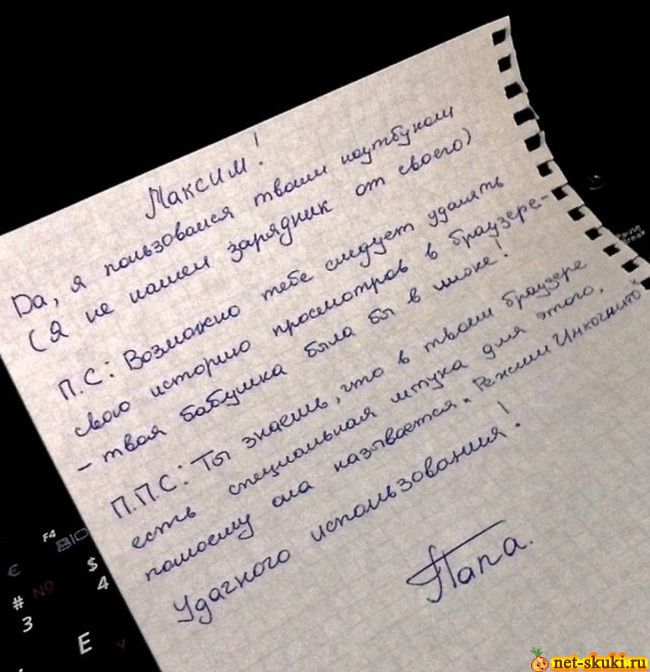 Максим!
Да, я пользовался твоим ноутбуком
(Я не нашел зарядник от своего)
П.С: Возможно тебе следует удалять
свою историю просмотров в браузере-
- твоя бабушка была бы в шоке!
П.П.С: Ты знаешь, что в твоем браузере
есть специальная штука для этого,
помоему она называется "Режим Инкогнито"
Удачного использования!
Папа.
F4
€
#
3
$
4
E
net-skuki.ru